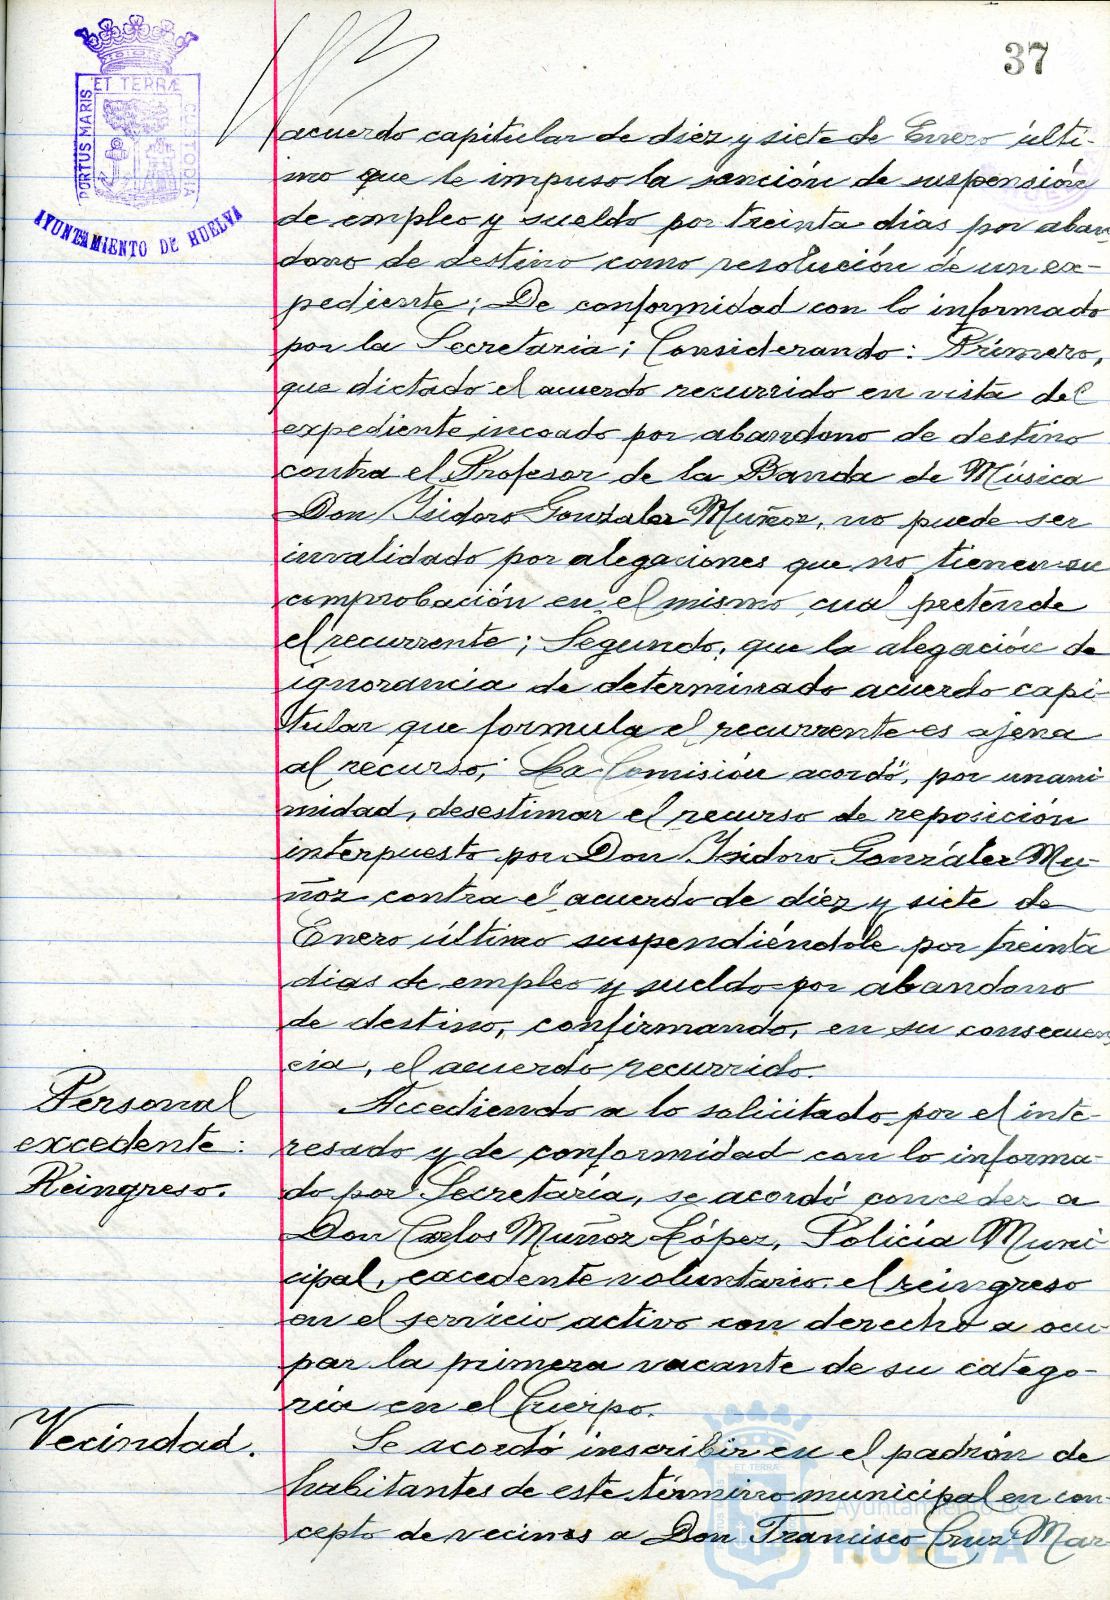 37
ET TERRÆ
PORTUS MARIS
CUSTODIA
AYUNTAMIENTO DE HUELVA
acuerdo capitular de diez y siete de Enero últi-
mo que le impuso la sanción de suspensión
de empleo y sueldo por treinta dias por aban
dono de destino como resolución de un ex-
pediente; De conformidad con lo informado
por la Secretaria; Considerando: Primero,
que dictado el acuerdo recurrido en vista del
expediente incoado por abandono de destino
contra el Profesor de la Banda de Música
Don Isidoro Gonzalez Muñoz, no puede ser
invalidado por alegaciones que no tienen su
comprobación en el mismo cual pretende
el recurrente; Segundo, que la alegación de
ignorancia de determinado acuerdo capi-
tular que formula el recurrente es ajena
al recurso; La Comisión acordó, por unani
midad, desestimar el recurso de reposición
interpuesto por Don Isidoro González Mu-
ñoz contra el acuerdo de diez y siete de
Enero último suspendiéndole por treinta
dias de empleo y sueldo por abandono
de destino, confirmando, en su consecuen
cia, el acuerdo recurrido.
Personal
excedente:
Reingreso.
Accediendo a lo solicitado por el inte-
resado y de conformidad con lo informa-
do por Secretaría, se acordó conceder a
Don Carlos Muñoz López, Policía Muni
cipal, excedente voluntario, el reingreso
en el servicio activo con derecho a ocu
par la primera vacante de su catego-
ria en el Cuerpo.
Vecindad.
Se acordó inscribir en el padrón de
habitantes de este término municipal en con-
cepto de vecinos a Don Francisco Cruz Mar
Ayuntamiento de
HUELVA